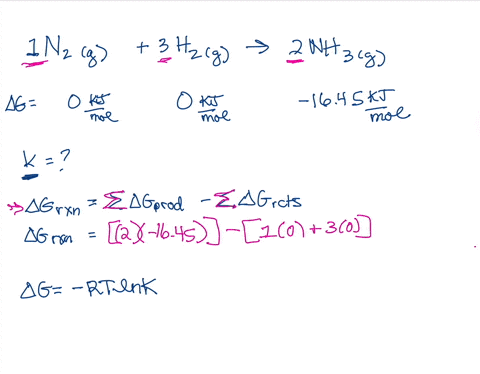 1N₂(g) + 3H₂(g) → 2NH₃(g)
ΔG= 0 KJ/mol 0 KJ/mol -16.45 KJ/mol
K = ?
→ ΔGrxn = ΣΔGprod - ΣΔGrcts
ΔGrxn = [(2)(-16.45)] - [1(0) + 3(0)]
ΔG = -RTlnK